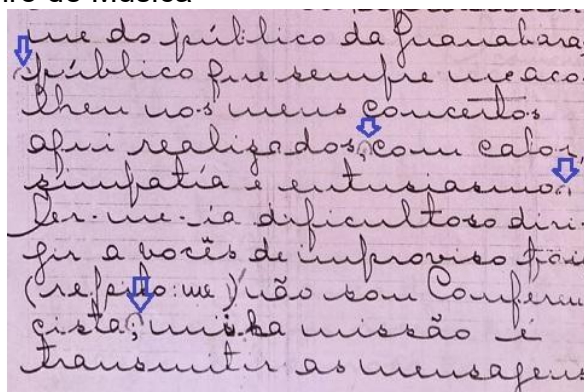 me do público da Guanabara,
público que sempre me aco
lheu nos meus concertos
aqui realizados, com calor,
simpatía e entusiasmo.
Ser-me-ia dificultoso diri
gir a vocês de improviso pois
(refiro: me) não sou Conferen
cista; minha missão é
transmitir as mensagens